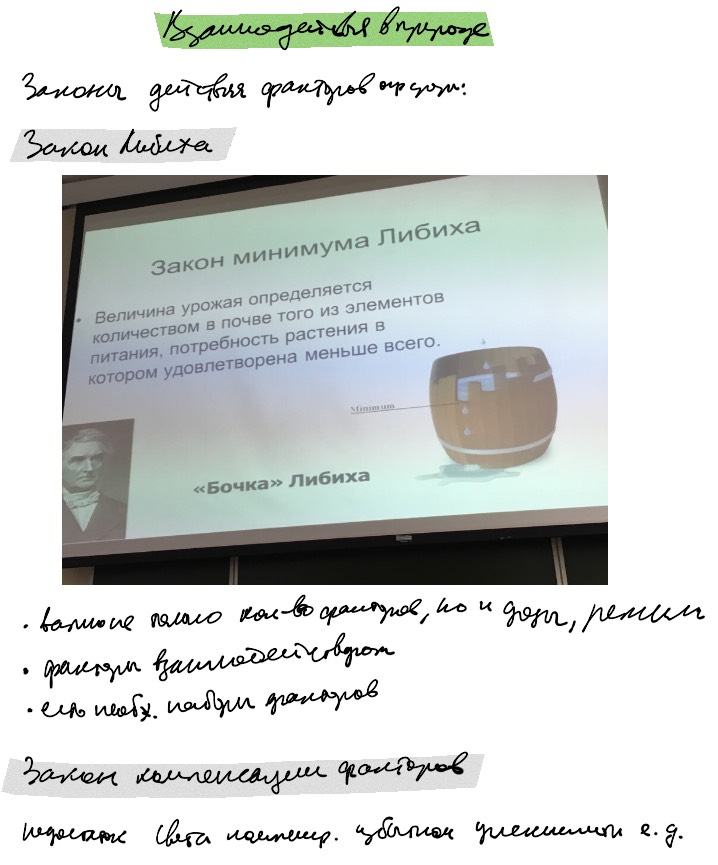 Взаимодействия в природе
Законы действия факторов среды:
Закон Либиха
Закон минимума Либиха
• Величина урожая определяется
количеством в почве того из элементов
питания, потребность растения в
котором удовлетворена меньше всего.
Minimum
«Бочка» Либиха
• важно не только кол-во факторов, но и дозы, режим
• факторы взаимодействуют
• есть необх. наборы факторов
Закон компенсации факторов
недостаток света избытком